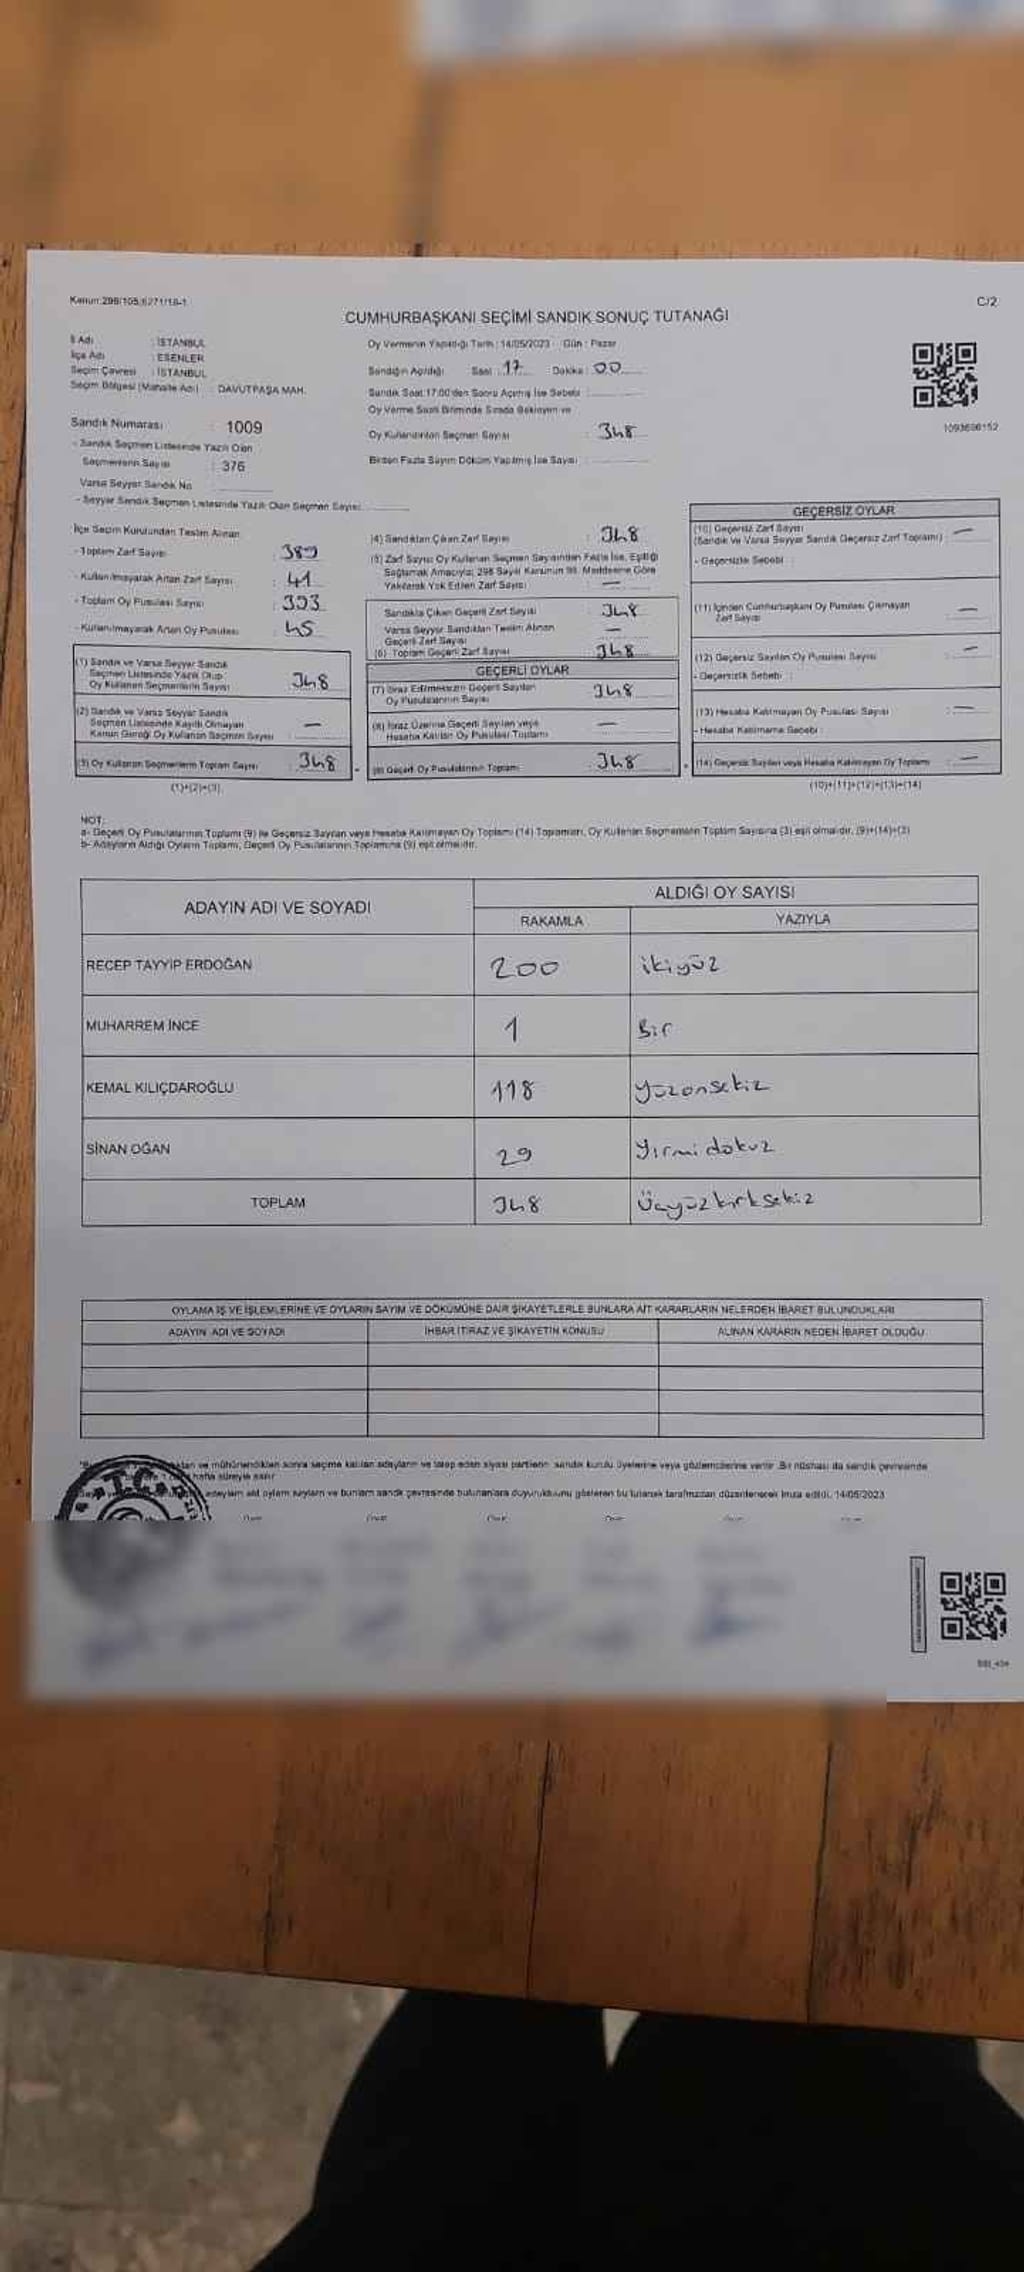 Kanun:298/105,6271/18-1
C/2
CUMHURBAŞKANI SEÇİMİ SANDIK SONUÇ TUTANAĞI
İl Adı : İSTANBUL
İlçe Adı : ESENLER
Seçim Çevresi : İSTANBUL
Seçim Bölgesi (Mahalle Adı) : DAVUTPAŞA MAH.
Oy Vermenin Yapıldığı Tarih : 14/05/2023 Gün : Pazar
Sandığın Açıldığı Saat : 17 Dakika : 00
Sandık Saat 17:00'den Sonra Açılmış İse Sebebi :
Oy Verme Saati Bitiminde Sırada Bekleyen ve
Oy Kullandırılan Seçmen Sayısı : 348
Birden Fazla Sayım Döküm Yapılmış İse Sayısı :
1093696152
Sandık Numarası : 1009
- Sandık Seçmen Listesinde Yazılı Olan
Seçmenlerin Sayısı : 376
Varsa Seyyar Sandık No
- Seyyar Sandık Seçmen Listesinde Yazılı Olan Seçmen Sayısı :
İlçe Seçim Kurulundan Teslim Alınan
- Toplam Zarf Sayısı : 389
- Kullanılmayarak Artan Zarf Sayısı : 41
- Toplam Oy Pusulası Sayısı : 393
- Kullanılmayarak Artan Oy Pusulası : 45
(1) Sandık ve Varsa Seyyar Sandık
Seçmen Listesinde Yazılı Olup
Oy Kullanan Seçmenlerin Sayısı : 348
(2) Sandık ve Varsa Seyyar Sandık
Seçmen Listesinde Kayıtlı Olmayan
Kanun Gereği Oy Kullanan Seçmen Sayısı : —
(3) Oy Kullanan Seçmenlerin Toplam Sayısı : 348
(1)+(2)=(3)
(4) Sandıktan Çıkan Zarf Sayısı : 348
(5) Zarf Sayısı Oy Kullanan Seçmen Sayısından Fazla İse, Eşitliği
Sağlamak Amacıyla; 298 Sayılı Kanunun 98. Maddesine Göre
Yakılarak Yok Edilen Zarf Sayısı : —
Sandıkta Çıkan Geçerli Zarf Sayısı : 348
Varsa Seyyar Sandıktan Teslim Alınan
Geçerli Zarf Sayısı : —
(6) Toplam Geçerli Zarf Sayısı : 348
GEÇERLİ OYLAR
(7) İtiraz Edilmeksizin Geçerli Sayılan
Oy Pusulalarının Sayısı : 348
(8) İtiraz Üzerine Geçerli Sayılan veya
Hesaba Katılan Oy Pusulası Toplamı : —
(9) Geçerli Oy Pusulalarının Toplamı : 348
GEÇERSİZ OYLAR
(10) Geçersiz Zarf Sayısı
(Sandık ve Varsa Seyyar Sandık Geçersiz Zarf Toplamı) : —
- Geçersizlik Sebebi :
(11) İçinden Cumhurbaşkanı Oy Pusulası Çıkmayan
Zarf Sayısı : —
(12) Geçersiz Sayılan Oy Pusulası Sayısı : —
- Geçersizlik Sebebi :
(13) Hesaba Katılmayan Oy Pusulası Sayısı : —
- Hesaba Katılmama Sebebi :
(14) Geçersiz Sayılan veya Hesaba Katılmayan Oy Toplamı : —
(10)+(11)+(12)+(13)=(14)
NOT:
a- Geçerli Oy Pusulalarının Toplamı (9) ile Geçersiz Sayılan veya Hesaba Katılmayan Oy Toplamı (14) Toplamları, Oy Kullanan Seçmenlerin Toplam Sayısına (3) eşit olmalıdır. (9)+(14)=(3)
b- Adayların Aldığı Oyların Toplamı, Geçerli Oy Pusulalarının Toplamına (9) eşit olmalıdır.
ADAYIN ADI VE SOYADI
ALDIĞI OY SAYISI
RAKAMLA YAZIYLA
RECEP TAYYİP ERDOĞAN 200 ikiyüz
MUHARREM İNCE 1 Bir
KEMAL KILIÇDAROĞLU 118 yüzonsekiz
SİNAN OĞAN 29 Yirmidokuz
TOPLAM 348 Üçyüzkırksekiz
OYLAMA İŞ VE İŞLEMLERİNE VE OYLARIN SAYIM VE DÖKÜMÜNE DAİR ŞİKAYETLERLE BUNLARA AİT KARARLARIN NELERDEN İBARET BULUNDUKLARI
ADAYIN ADI VE SOYADI İHBAR İTİRAZ VE ŞİKAYETİN KONUSU ALINAN KARARIN NEDEN İBARET OLDUĞU
ve mühürlendikten sonra seçime katılan adayların ve talep eden siyasi partilerin sandık kurulu üyelerine veya gözlemcilerine verilir. Bir nüshası da sandık çevresinde
hafta süreyle asılır.
adayların aldığı oyların sayıların ve bunların sandık çevresinde bulunanlara duyurulduğunu gösteren bu tutanak tarafımızdan düzenlenerek imza edildi. 14/05/2023
T.C.